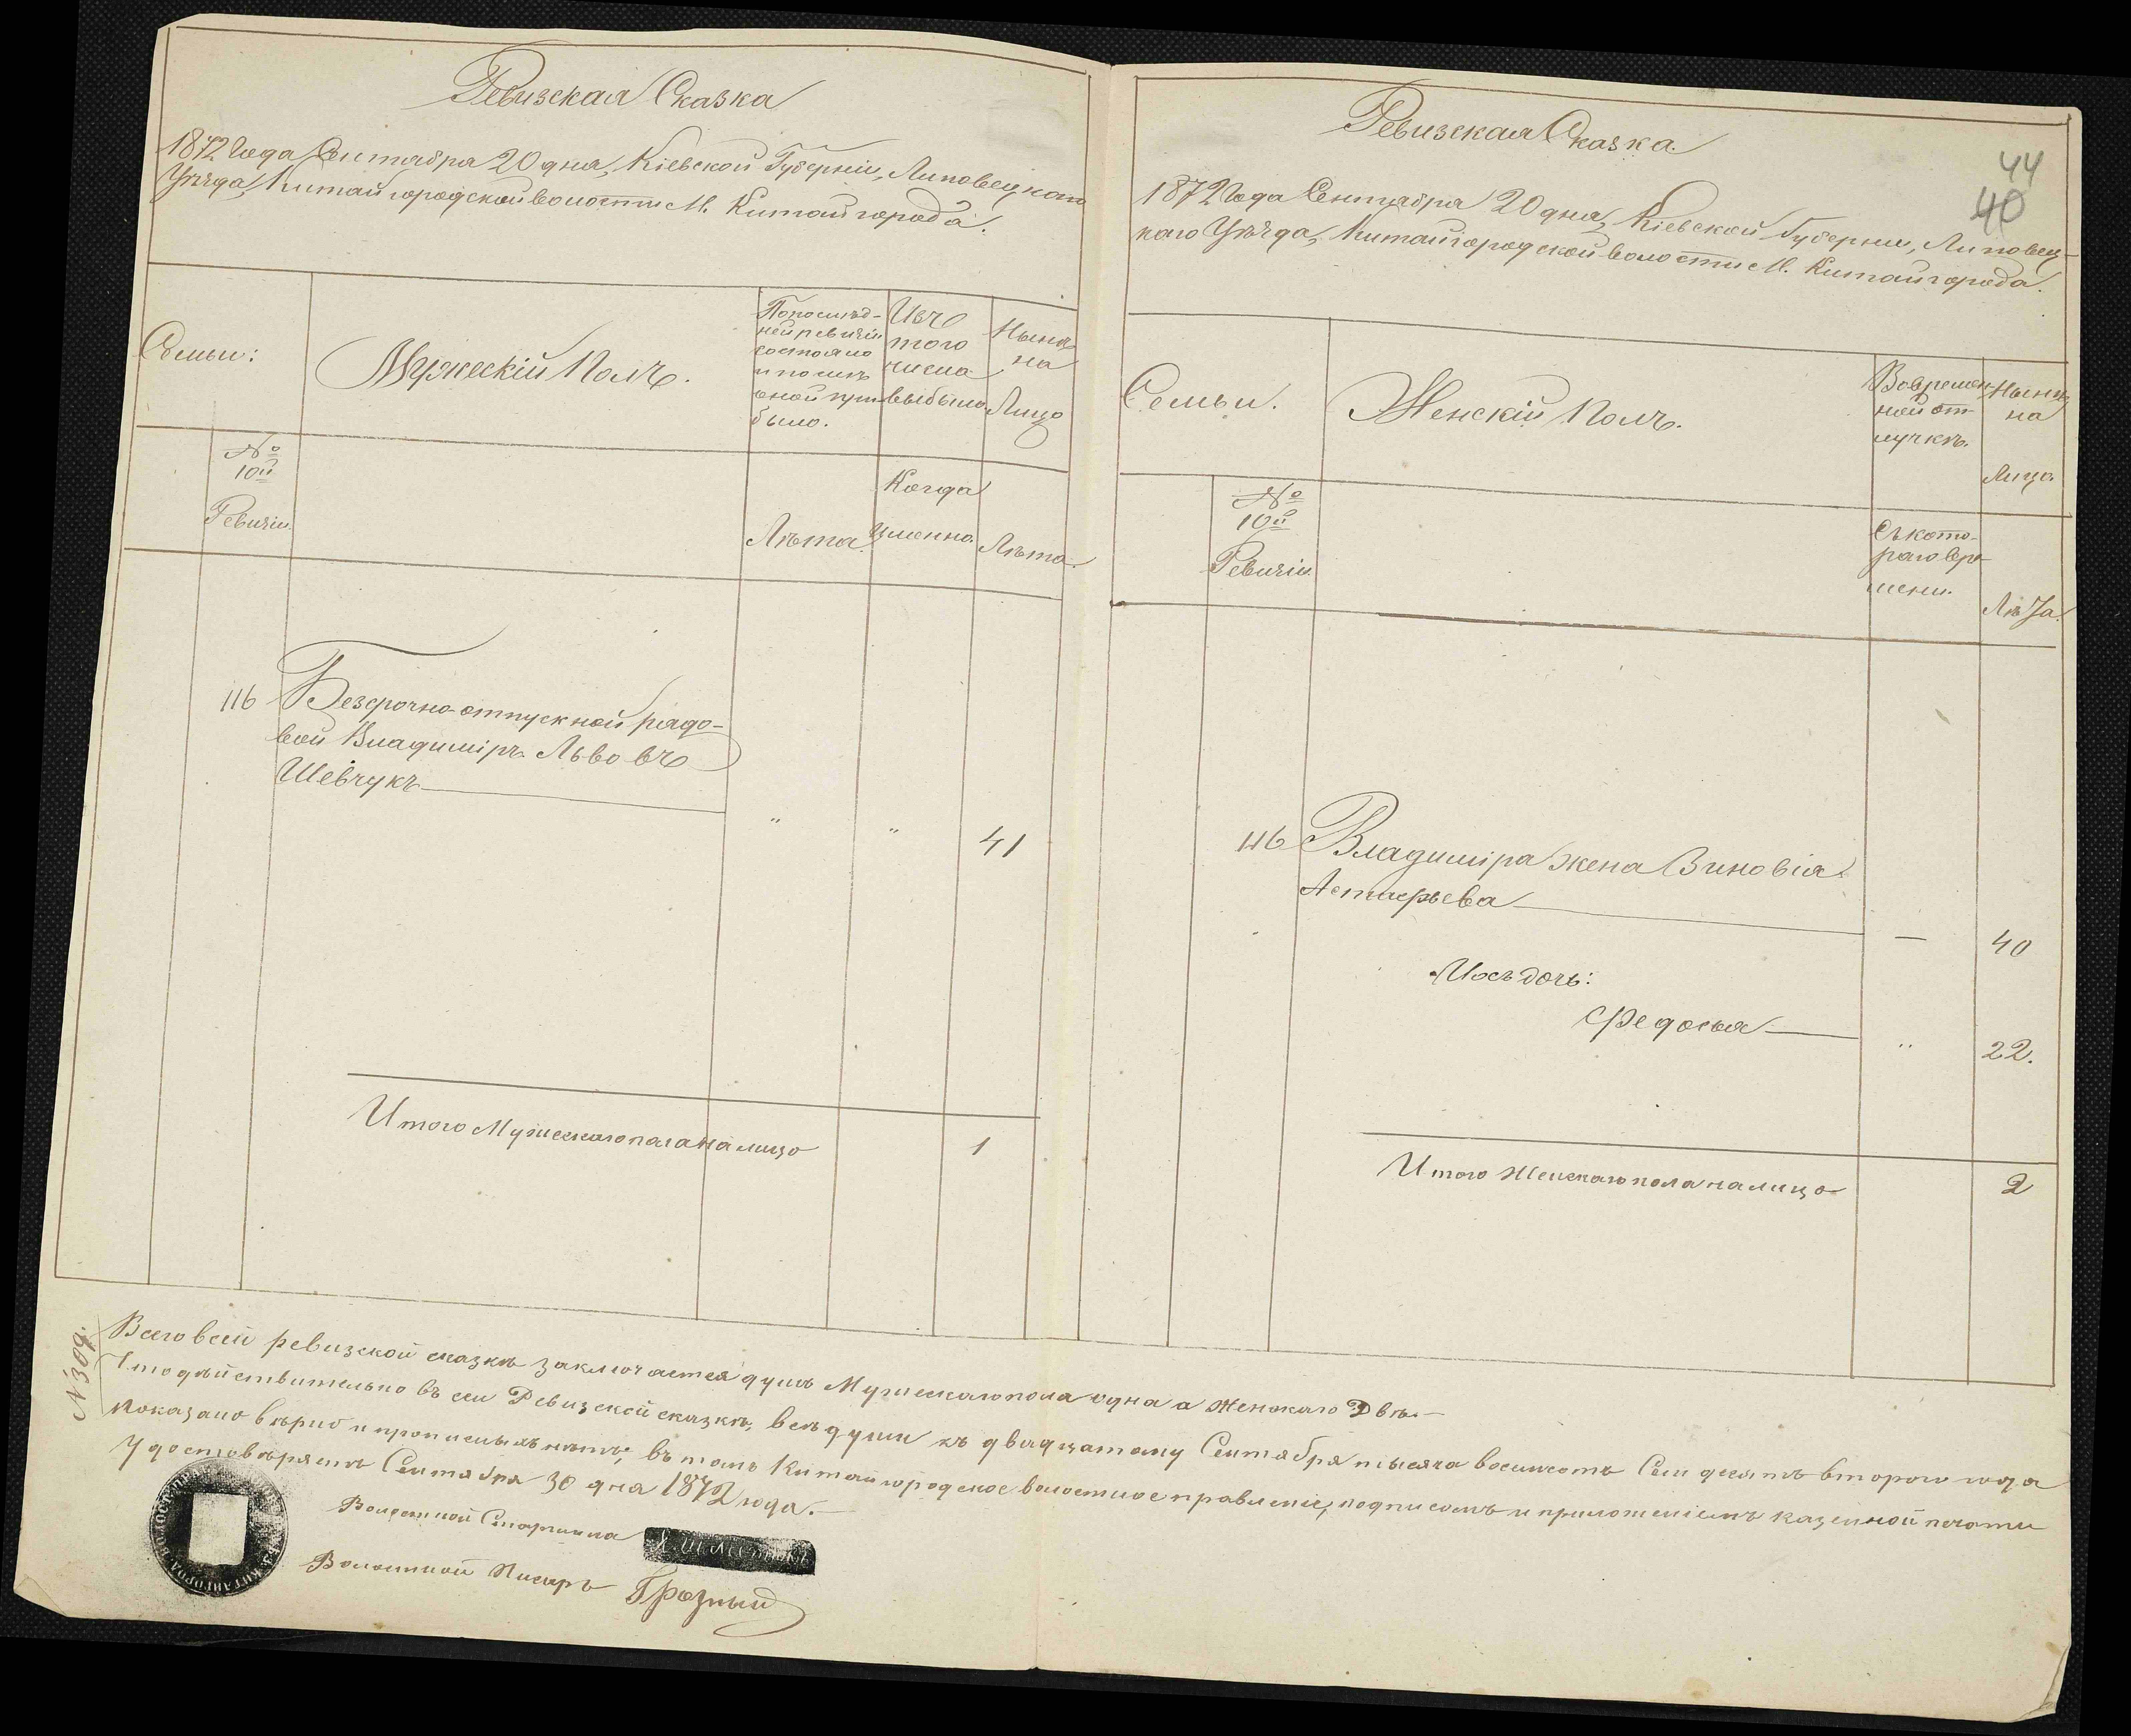 Ревизская Сказка
1872 Года Сентября 20 дня, Кіевской Губерніи, Липовецкаго
Уѣзда, Китайгородской волости М. Китайгорода.
Семьи:
Мужескій Полъ.
Попослѣд-
ней ревизіи
состояло
и послѣ
оной при
было.
Изъ
того
числа
выбыло
Нынѣ
на
Лицо
№
10й
Ревизіи.
Лѣта.
Когда
именно.
Лѣта.
116
Безсрочно-отпускной рядо-
вой Владиміръ Львовъ
Шевчукъ
"
"
41
Итого Мужескаго пола на лицо
1
Ревизская Сказка.
44
40
1872 Года Сентября 20 дня, Кіевской Губерніи, Липовец-
каго Уѣзда, Китайгородской волости М. Китайгорода.
Семьи.
Женскій Полъ.
Во времен-
ной от-
лучкѣ.
Нынѣ
на
Лицо.
№
10й
Ревизіи.
Съ кото-
раго вре-
мени.
Лѣта.
116
Владиміра жена Зиновія
Астаерьева
—
40
Ихъ дочь:
Федосья
"
22.
Итого Женскаго пола на лицо
2
№309.
Всего в сей ревизской сказкѣ заключается душъ Мужескаго пола одна а Женскаго Двѣ.—
Что действительно въ сей Ревизской сказкѣ, всѣ души къ двадцатому Сентября тысяча восемсотъ Семдесятъ второго года
показано вѣрно и прописныхъ нѣтъ; въ томъ Китайгородское волостное правленіе, подписомъ и приложеніемъ казенной печати
Удостовѣряетъ Сентября 30 дня 1872 года.—
Волостной Старшина
Волостной Писарь Грозный